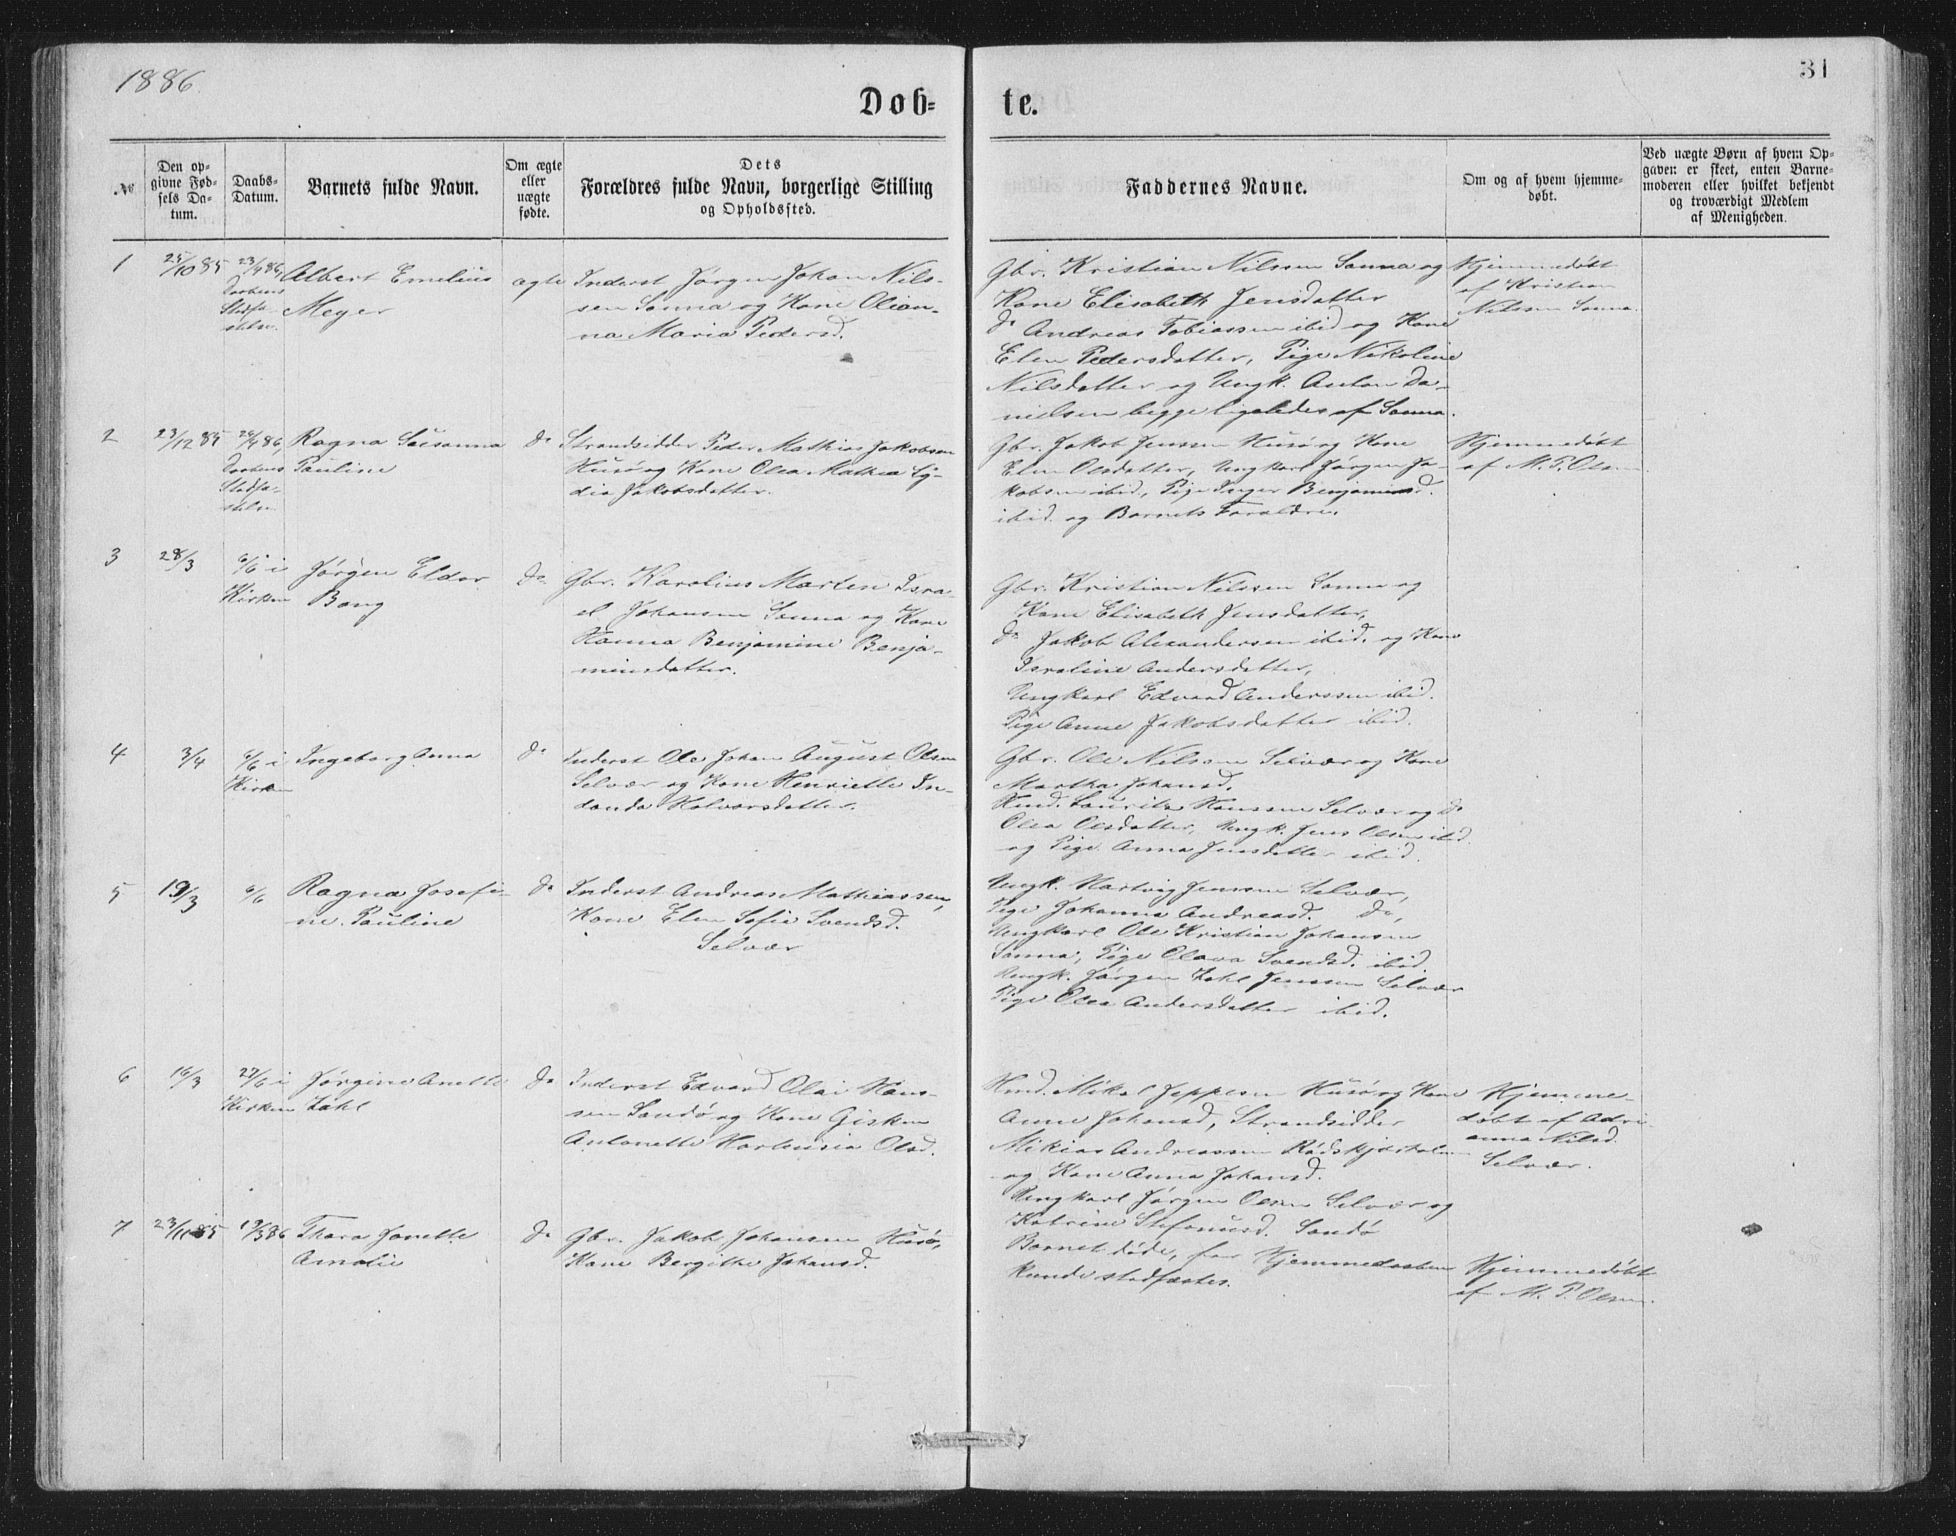 1886
31
Døb-
te.
№
Den op-
givne Fød-
sels Da-
tum.
Daabs-
Datum.
Barnets fulde Navn.
Om ægte
eller
uægte
fødte.
Dets
Forældres fulde Navn, borgerlige Stilling
og Opholdssted.
Faddernes Navne.
Om og af hvem hjemme-
døbt.
Ved uægte Børn af hvem Op-
gaven er skeet, enten Barne-
moderen eller hvilket bekjendt
og troværdigt Medlem
af Menigheden.
1
25/10 85
Daabens
Stadfæ-
stelse
Albert Emelius
Meyer
ægte
Inderst Jørgen Johan Nils-
sen Sanna og Kone Olian-
na Maria Pedersd.
Gbr. Kristian Nilssen Sanna og
Kone Elisabeth Jensdatter
do Andreas Tobiassen ibid og Kone
Elen Pedersdatter, Pige Nikoline
Nilsdatter og Ungk. Anton Da-
nielsen begge ligeledes af Sanna.
Hjemmedøbt
af Kristian
Nilssen Sanna.
2
23/12 85
Daabens
Stadfæ-
stelse
Ragna Susanna
Pauline
do
Strandsidder Peder Mathias Jakobsen
Husø og Kone Olea Mathea Ly-
dia Jakobsdatter.
Gbr. Jakob Jenssen Husø og Kone
Elen Olsdatter, Ungkarl Jørgen Ja-
kobsen ibid, Pige Inger Benjaminsd.
ibid. og Barnets Forældre.
Hjemmedøbt
af M. P. Olsen
3
28/3
6/6 i
Kirken
Jørgen Eldor
Bang
do
Gbr. Karolius Marten Isra-
el Johansen Sanna og Kone
Hanna Benjamine Benja-
minsdatter.
Gbr. Kristian Nilssen Sanna og
Kone Elisabeth Jensdatter,
do Jakob Alexandersen ibid. og Kone
Israeline Andersdatter,
Ungkarl Edvard Anderssen ibid.
Pige Anne Jakobsdatter ibid.
4
3/4
6/6 i
Kirken
Ingeborg Anna
do
Inderst Ole Johan August Olsen
Selvær og Kone Henriette
Halvorsdatter.
Gbr. Ole Nilssen Selvær og Kone
Martha Johansd.
Hmd. Lauritz Hanssen Selvær og do
Olea Olsdatter, Ungk. Jens Olsen ibid
og Pige Anna Jensdatter ibid.
5
19/3
6/6
Ragna Josefi-
ne Pauline
do
Inderst Andreas Mathiassen,
Kone Elen Sofie Svendsd.
Selvær
Ungk. Hartvig Jenssen Selvær,
Pige Johanna Andreasd. do,
Ungkarl Ole Kristian Johansen
Sanna, Pige Olava Svendsd. ibid.
Ungk. Jørgen Zahl Jenssen Selvær
Pige Olea Andersdatter ibid.
6
16/3
27/6 i
Kirken
Jørgine Anette
Zahl
do
Inderst Edvard Olai Hans-
sen Sandø og Kone Gisken
Antonette Hartensia Olsd.
Hmd. Mikal Jeppesen Husø og Kone
Anne Johansd, Strandsidder
Mikias Andreassen Rødskjærholm
og Kone Anna Johansd.
Ungkarl Jørgen Olsen Selvær og
Katrine Stefanusd. Sandø
Hjemme-
døbt af Adri-
anna Nilsd.
Selvær.
7
23/11 85
19/3 86
Thora Janette
Amalie
do
Gbr. Jakob Johansen Husø,
Kone Bergithe Johansd.
Barnet døde, før Hjemmedaaben
kunde stadfæstes.
Hjemmedøbt
af M. P. Olsen.